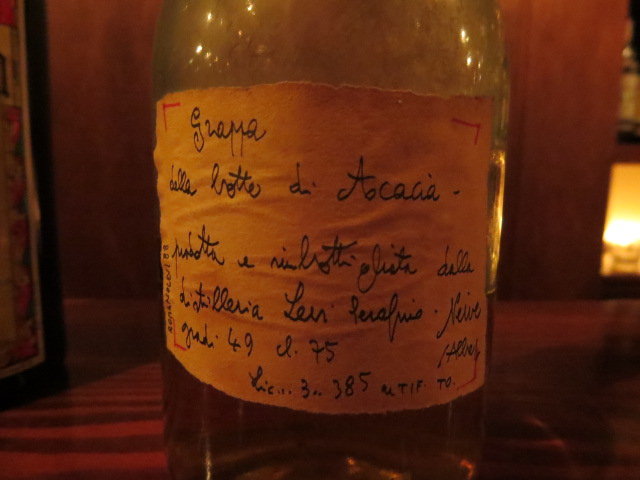 Grappa
dalla botte di Acacia -
prodotta e imbottigliata dalla
distilleria Levi Serafino · Neive
gradi 49 cl. 75 (Alba)
Lic... 3.. 385 UTIF. TO.
ROMANOLEVI 88